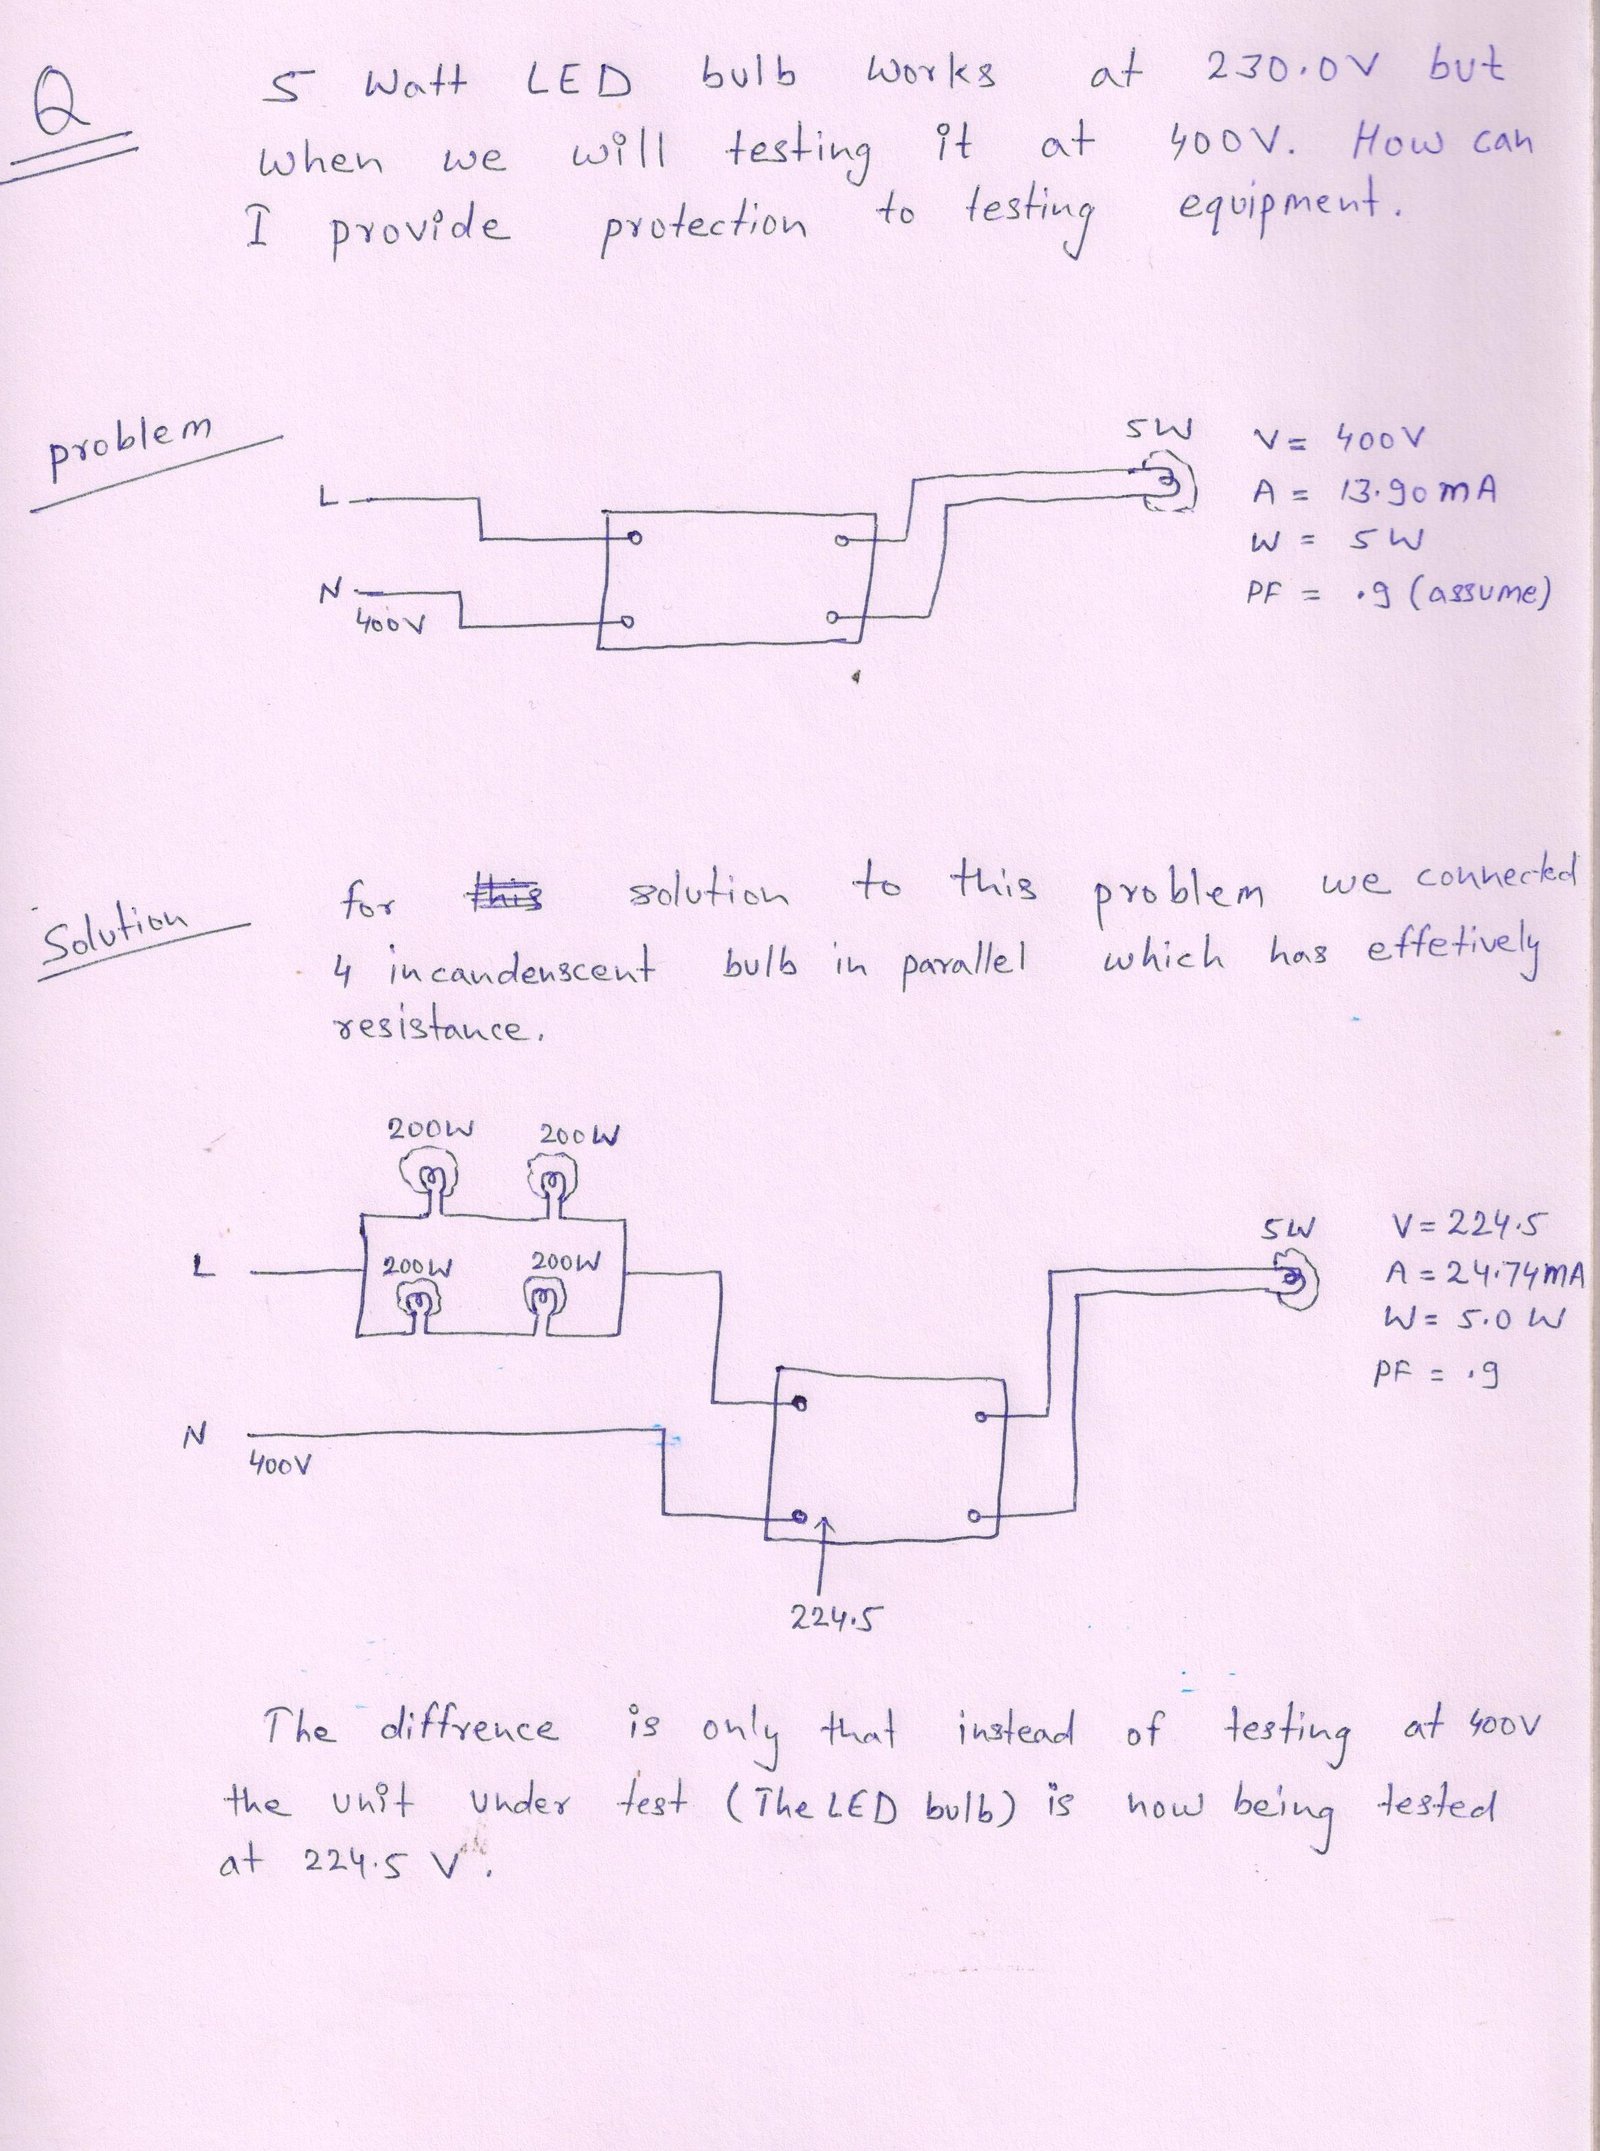 Q
5 Watt LED bulb works at 230.0V but
when we will testing it at 400V. How can
I provide protection to testing equipment.
problem
5W
V = 400V
L
A = 13.90mA
W = 5W
N
PF = .9 (assume)
400V
Solution
for this solution to this problem we connected
4 incandenscent bulb in parallel which has effetively
resistance.
200W 200W
5W
V = 224.5
L
200W 200W
A = 24.74mA
W = 5.0 W
PF = .9
N
400V
224.5
The diffrence is only that instead of testing at 400V
the unit under test (The LED bulb) is now being tested
at 224.5 V.